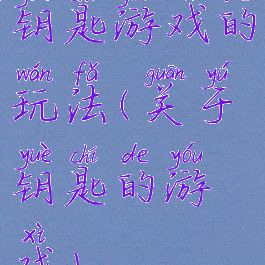 钥匙游戏的
wán fǎ guān yú
玩法(关于
yuè chí de yóu
钥匙的游
xì
戏)